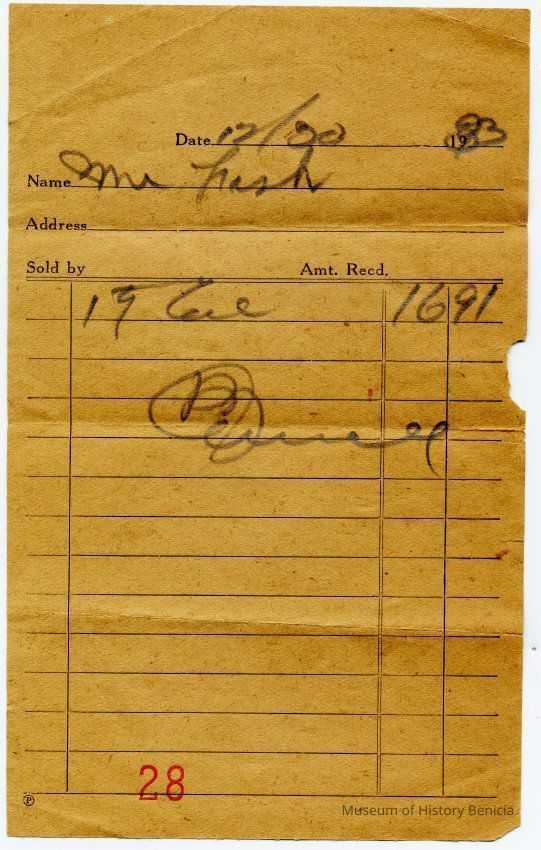 Date 12/20 1933
Name Mr Fish
Address
Sold by Amt. Recd.
19 1691
28
P
Museum of History Benicia